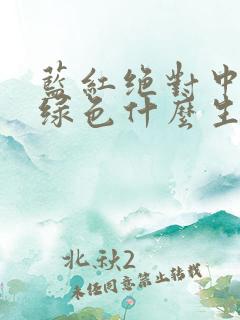 藍紅绝對中
绿色什麼生
北秋2
未经同意禁止转载